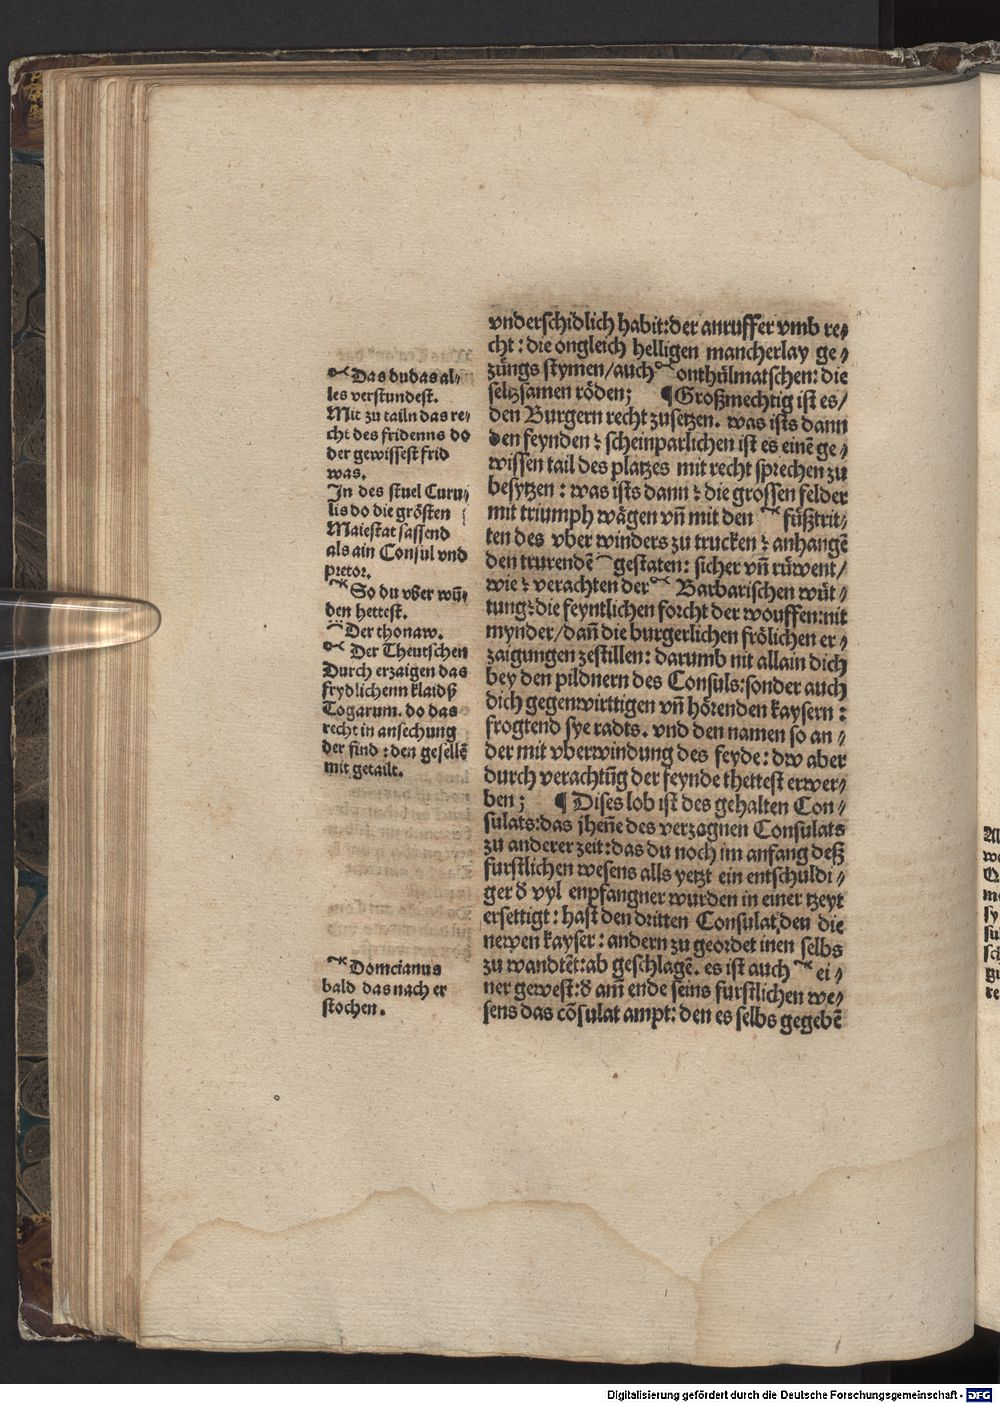 Das du das al⸗
les verstundest.
Mit zu tailn das re⸗
cht des fridenns do
der gewissest frid
was.
In des stuel Curu⸗
lis do die grösten
Maiestat sassend
als ain Consul vnd
pretor.
So du vßer wū⸗
den hettest.
Der thonaw.
Der Theutschen
Durch erzaigen das
frydlichenn klaidß
Togarum. do das
recht in ansechung
der find : den gesellē
mit getailt.
Domcianus
bald das nach er
stochen.
vnderschidlich habit: der anruffer vmb re⸗
cht : die ongleich helligen mancherlay ge⸗
züngs stymen/ auch onthülmatschen: die
seltzsamen röden; ¶ Großmechtig ist es/
den Burgern recht zusetzen. was ists dann
den feynden ⁊ scheinparlichen ist es einē ge⸗
wissen tail des platzes mit recht sprechen zu
besytzen : was ists dann ⁊ die grossen felder
mit triumph wägen vn̄ mit den füßtrit⸗
ten des vber winders zu trucken ⁊ anhangē
den trurendē gestaten: sicher vn̄ rüwent/
wie ⁊ verachten der Barbarischen wüt⸗
tung ⁊ die feyntlichen forcht der wouffen: nit
mynder/ dan̄ die burgerlichen frölichen er⸗
zaigungen zestillen: darumb nit allain dich
bey den pildnern des Consuls: sonder auch
dich gegenwirttigen vn̄ hörenden kaysern :
frogtend sye radts. vnd den namen so an⸗
der mit vberwindung des feyde : dw aber
durch verachtūg der feynde thettest erwer⸗
ben ; ¶ Dises lob ist des gehalten Con⸗
sulats: das jhen̄e des verzagnen Consulats
zu anderer zeit: das du noch im anfang deß
furstlichen wesens alls yetzt ein entschuldi⸗
ger ð vyl enpfangner wurden in einer tzeyt
ersettigt : hast den dritten Consulat, den die
newen kayser : andern zu geordet inen selbs
zu wandtēt: ab geschlagē. es ist auch ei⸗
ner gewest: ð am̄ ende seins furstlichen we⸗
sens das cōsulat ampt: den es selbs gegebē
Digitalisierung gefördert durch die Deutsche Forschungsgemeinschaft - DFG